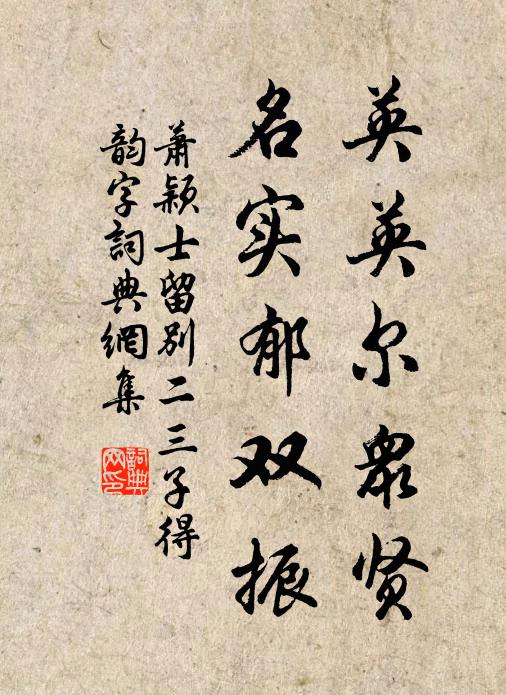 英英尔眾贤
名实郁双振
萧颖士留别二三子得
韵字詞典網集
詞典网印